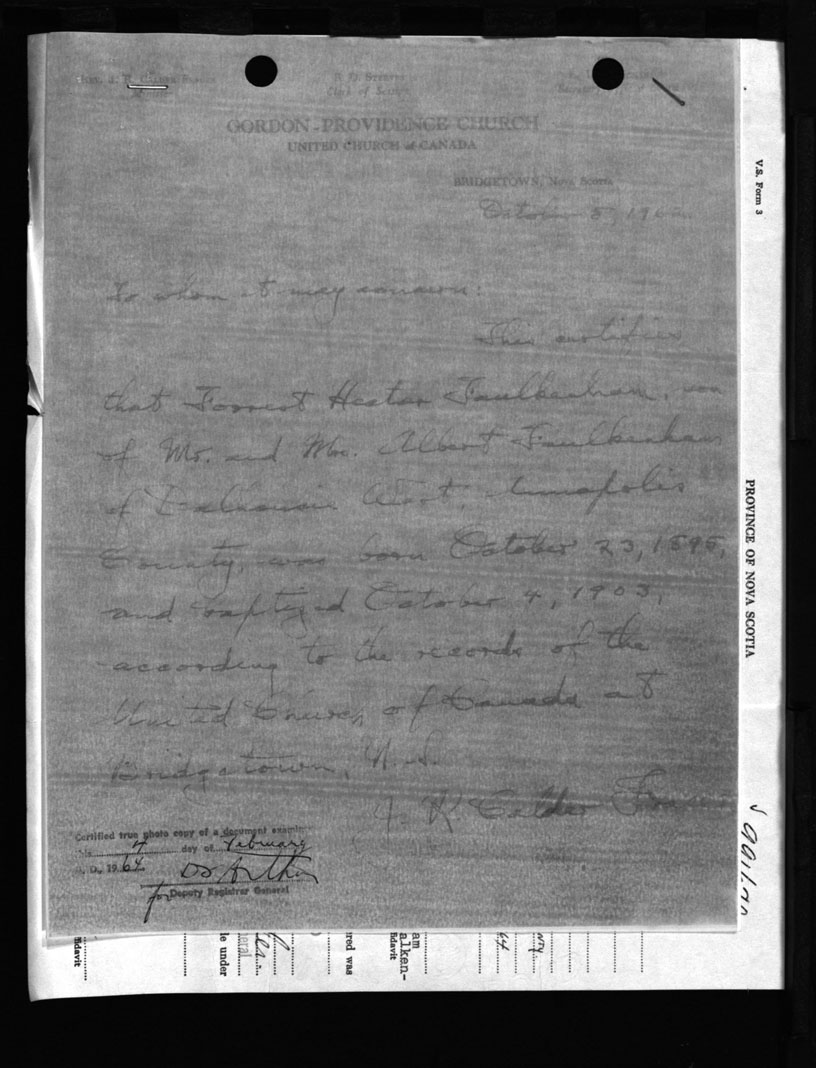 GORDON-PROVIDENCE CHURCH
UNITED CHURCH of CANADA
BRIDGETOWN, Nova Scotia
October 5, 19
To whom it may concern:
This certifies
that Forrest Hector Faulkenham, son
of Mr. and Mrs. Albert Faulkenham
of Dalhousie West, Annapolis
County, was born October 23, 1895,
and baptized October 4, 1903,
according to the records of the
United Church of Canada at
Bridgetown, N.S.
Certified true photo copy of a document
4 day of February
D., 1964
for Deputy Registrar General
V.S. Form 3
PROVINCE OF NOVA SCOTIA
fidavit
le under
eral
red was
am
alken-
fidavit
64